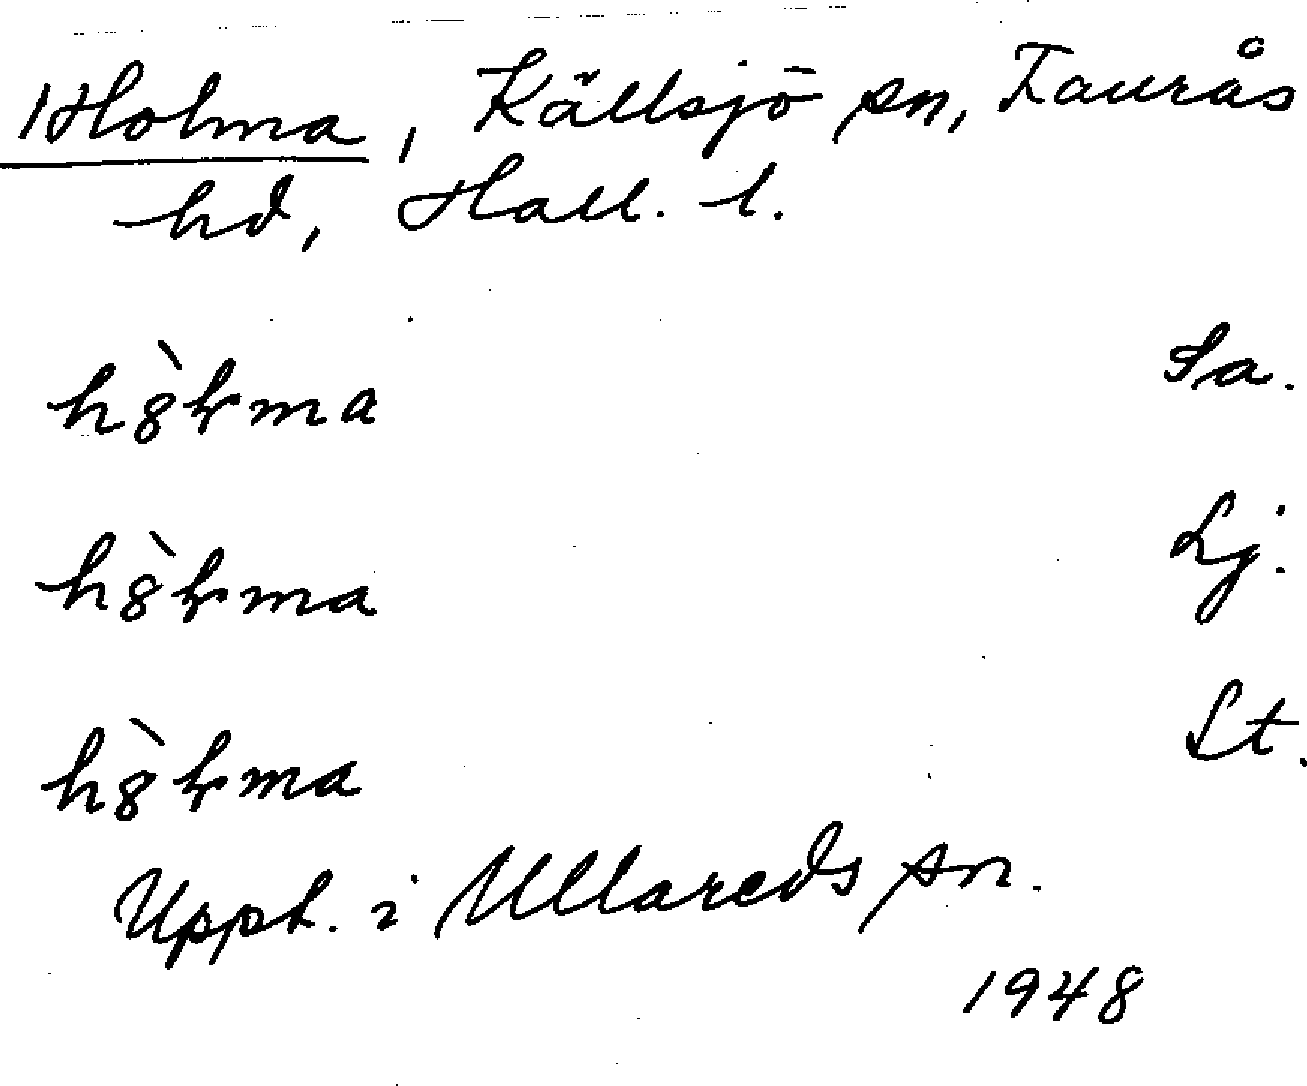 Holma, Källsjö sn, Faurås
hd, Hall. l.
hȣ̀ɫma Sa.
hȣ̀ɫma Lj.
hȣ̀ɫma St.
Uppt. i Ullareds sn.
1948